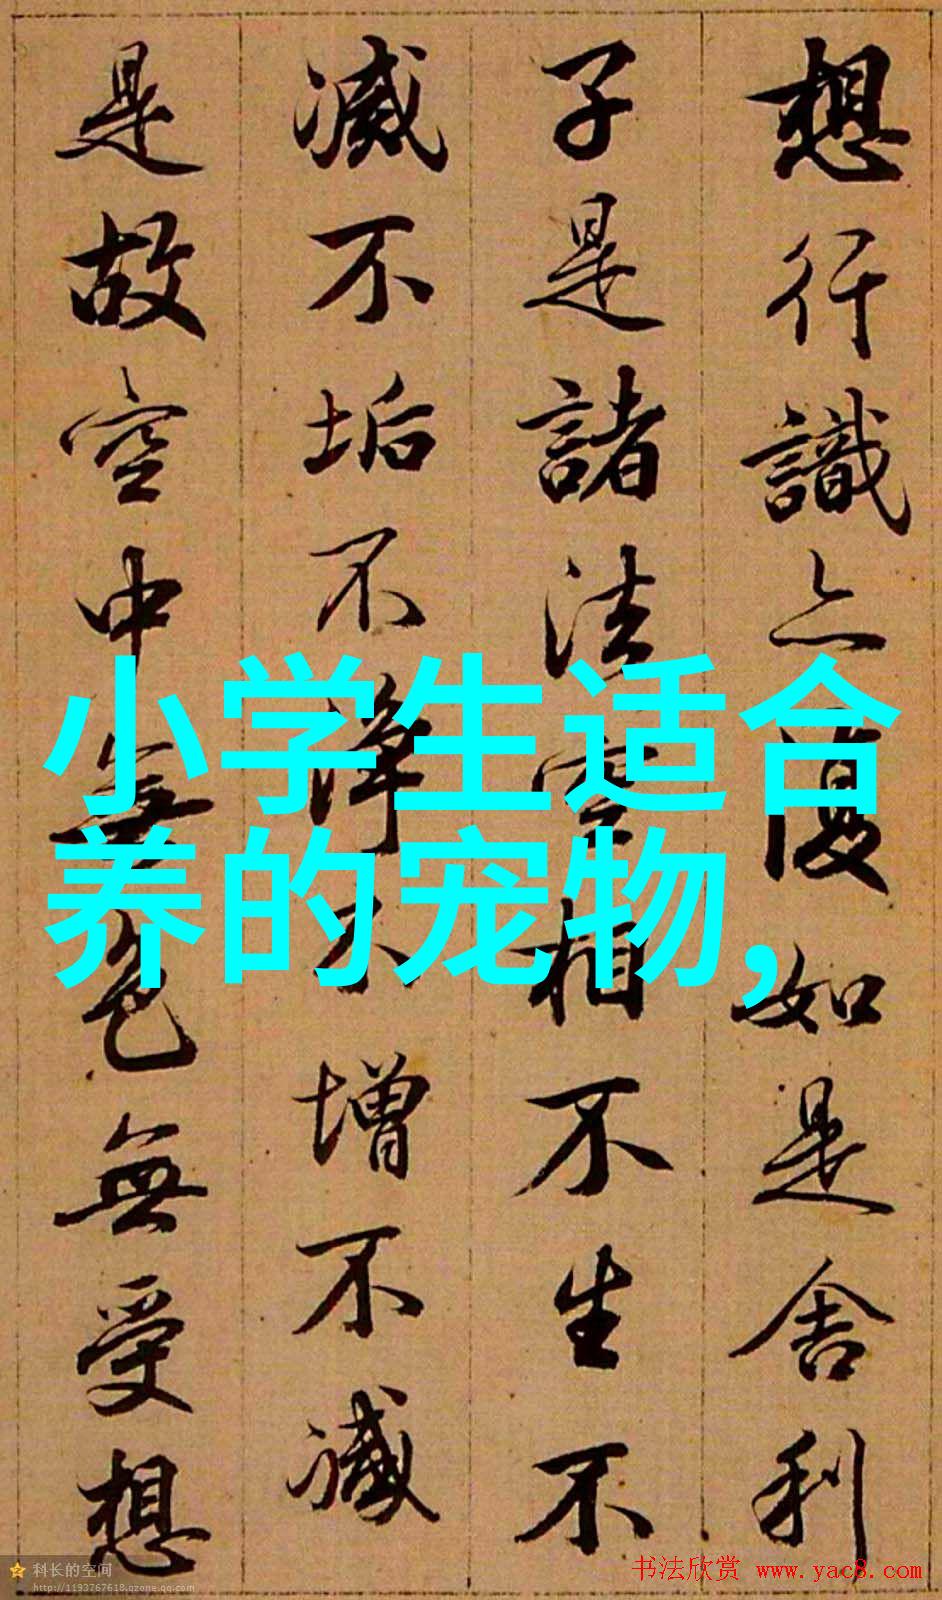 想行識亦復如是舍利
子是諸法空相不生不
滅不垢不淨不增不減
是故空中無色無受想
小学生适合
养的宠物,
科长的空间
http://1193767618.qzone.qq.com
书法欣赏 www.yac8.com